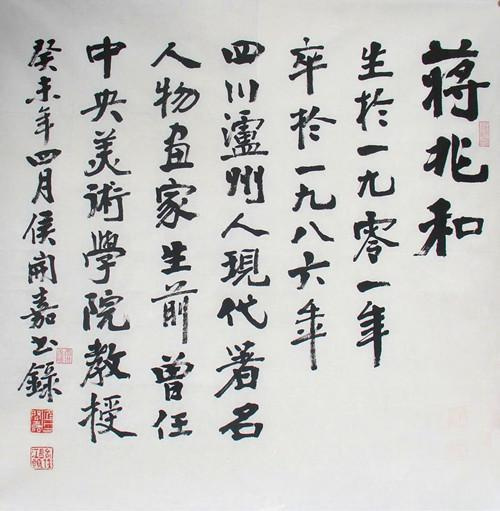 蔣兆和
生於一九零一年
卒於一九八六年
四川瀘州人現代著名
人物画家生前曾任
中央美術學院教授
癸未年四月侯開嘉书錄